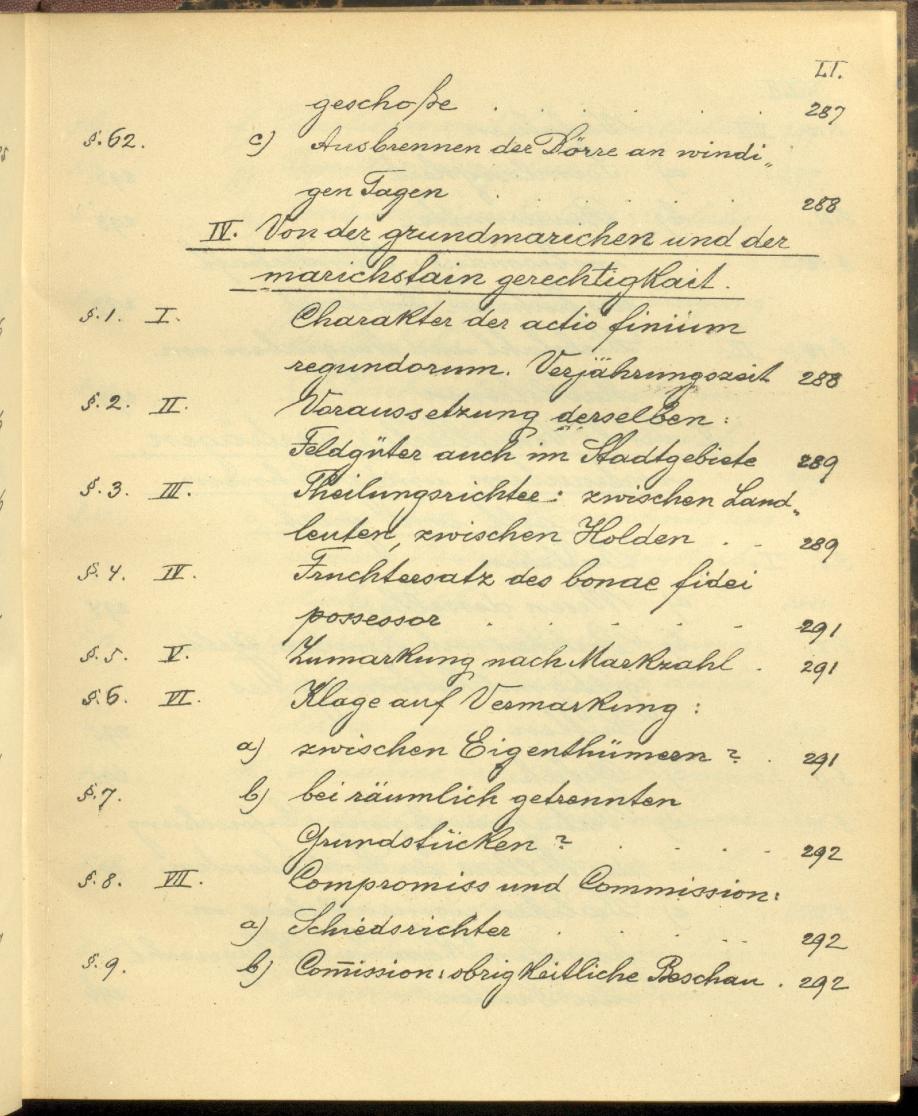 LI.
geschoße . . . . . 287
§. 62. c) Ausbrennen der Dörre an windi„
gen Tagen 288
IV. Von der grundmarichen und der
marichstain gerechtigkait.
§. 1. I. Charakter der actio finium
regundorum. Verjährungszeit 288
§. 2. II. Voraussetzung derselben:
Feldgüter auch im Stadtgebiete 289
§. 3. III. Theilungsrichter: zwischen Land„
leuten, zwischen Holden . . 289
§. 4. IV. Fruchtersatz des bonae fidei
possessor . . . . . 291
§. 5. V. Zumarkung nach Markzahl . 291
§. 6. VI. Klage auf Vermarkung:
a) zwischen Eigenthümern? . 291
§. 7. b) bei räumlich getrennten
Grundstücken? . . . . 292
§. 8. VII. Compromiss und Commission:
a) Schiedsrichter . . . . 292
§. 9. b) Com̅ission: obrigkeitliche Beschau . 292